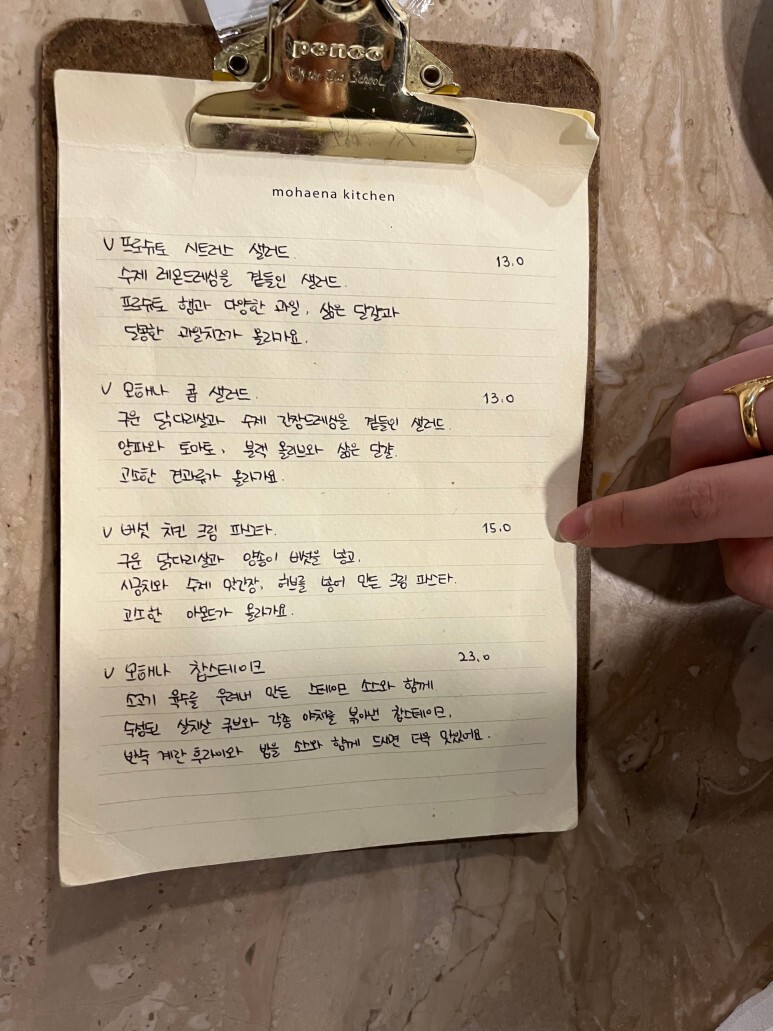 penco
mohaena kitchen
∨ 프로슈토 시트러스 샐러드. 13.0
수제 레몬드레싱을 곁들인 샐러드.
프로슈토 햄과 다양한 과일, 삶은 달걀과
달콤한 과일치즈가 올라가요.
∨ 모해나 콥 샐러드. 13.0
구운 닭다리살과 수제 간장드레싱을 곁들인 샐러드.
양파와 토마토, 블랙 올리브와 삶은 달걀.
고소한 견과류가 올라가요.
∨ 버섯 치킨 크림 파스타. 15.0
구운 닭다리살과 양송이 버섯을 넣고,
시금치와 수제 맛간장, 허브를 넣어 만든 크림 파스타.
고소한 아몬드가 올라가요.
∨ 모해나 찹스테이크 23.0
소고기 육수를 우려내 만든 스테이크 소스와 함께
숙성된 살치살 큐브와 각종 야채를 볶아낸 찹스테이크.
반숙 계란 후라이와 밥을 소스와 함께 드시면 더욱 맛있어요.